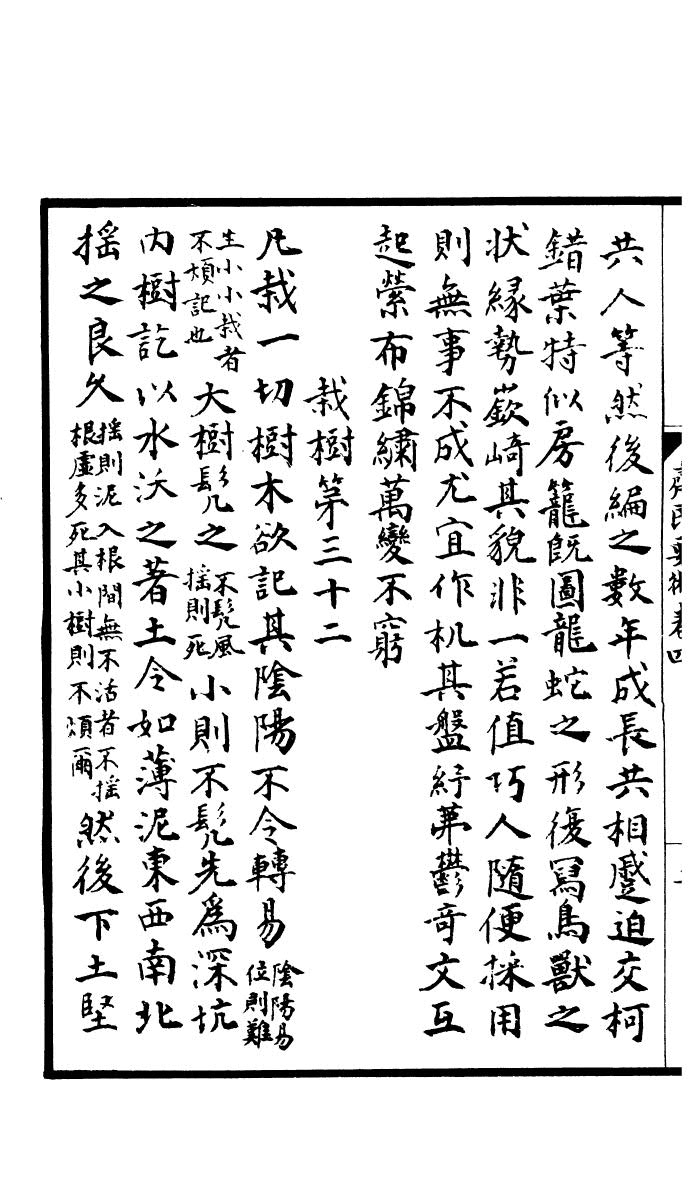 齊民要術卷四
共人等然後編之數年成長共相蹙迫交柯
錯葉特似房籠既圖龍蛇之形復冩鳥獸之
状縁勢嶔崎其貌非一若值巧人隨便採用
則無事不成尤宜作机其盤紆茀鬱竒文互
起縈布錦繡萬變不窮
栽樹第三十二
凡栽一切樹木欲記其陰陽不令轉易陰陽易位則難
生小小栽者不煩記也大樹髠之不髠風摇則死小則不髠先爲深坑
内樹訖以水沃之著土令如薄泥東西南北
摇之良久摇則泥入根間無不活者不摇根虛多死其小樹則不煩爾然後下土堅